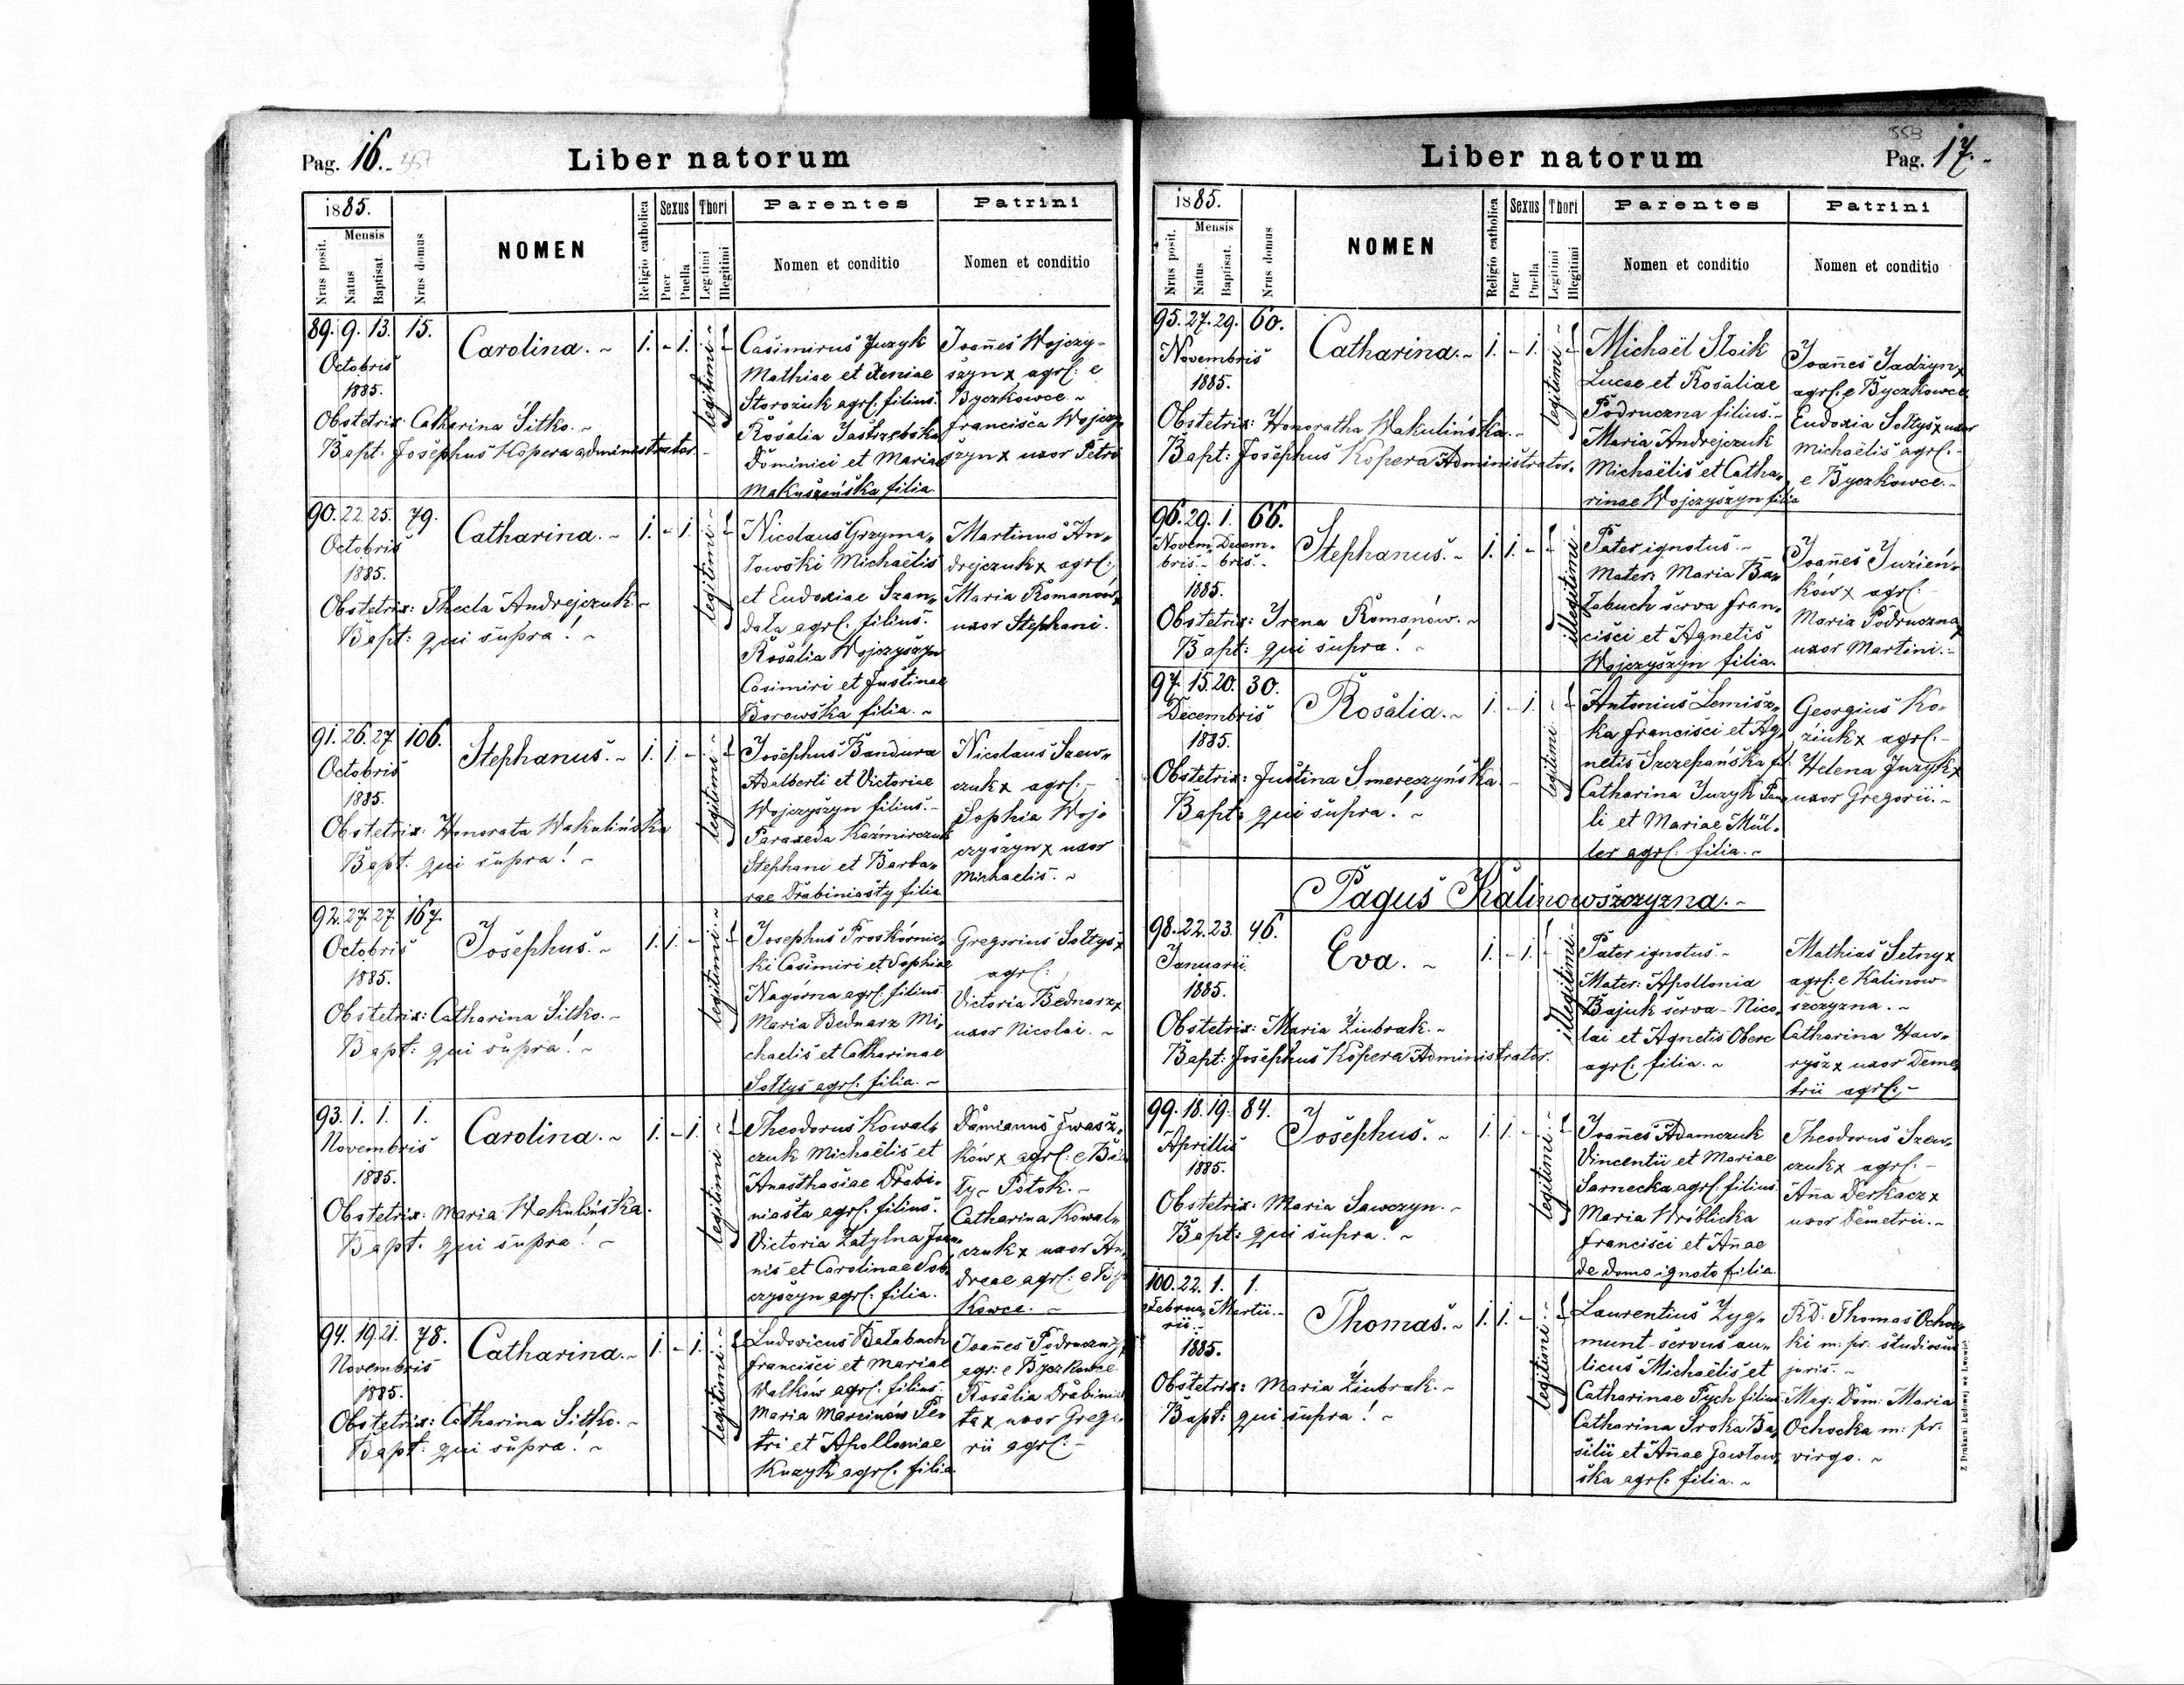 Pag. 16.
Liber natorum
1885.
Nrus posit.
Mensis
Natus
Baptisat.
Nrus domus
NOMEN
Religio catholica
Sexus
Puer
Puella
Thori
Legitimi
Illegitimi
Parentes
Nomen et conditio
Patrini
Nomen et conditio
89. 9. 13. 15.
Octobris
1885.
Carolina.
1. - 1.
legitimi
Obstetrix: Catharina Sitko.
Bapt: Josephus Kopera administrator.
Casimirus Juzyk
Mathiae et Xeniae
Storożuk agrl: filius.
Rosalia Jastrzebska
Dominici et Mariae
Makuszeńska filia.
Joannes Wojczy-
szyn x agrl: e
Byczkowce
Francisca Wojczy
szyn x uxor Petri
90. 22. 25. 79.
Octobris
1885.
Catharina.
1. - 1.
legitimi
Obstetrix: Thecla Andrejczuk
Bapt: qui supra!
Nicolaus Grzyma„
łowski Michaëlis
et Eudoxiae Szan„
dała agrl: filius.
Rosalia Wojczyszyn
Casimiri et Justinae
Borowska filia.
Martinus An„
drejczuk x agrl:
Maria Romanów x
uxor Stephani.
91. 26. 27. 106.
Octobris
1885.
Stephanus.
1. 1. -
legitimi
Obstetrix: Honorata Wakulińska
Bapt: qui supra!
Josephus Bandura
Adalberti et Victoriae
Wojczyszyn filius.
Paraxeda Kaźmirczuk
Stephani et Barba„
rae Drabiniasty filia
Nicolaus Szew„
czuk x agrl:
Sophia Woj„
czyszyn x uxor
Michaelis.
92. 27. 27. 167.
Octobris
1885.
Josephus.
1. 1. -
legitimi
Obstetrix: Catharina Sitko.
Bapt: qui supra!
Josephus Proskórnic„
ki Casimiri et Sophiae
Nagórna agrl: filius.
Maria Bednarz Mi„
chaelis et Catharinae
Sołtys agrl: filia.
Gregorius Sołtys x
agrl:
Victoria Bednarz x
uxor Nicolai.
93. 1. 1. 1.
Novembris
1885.
Carolina.
1. - 1.
legitimi
Obstetrix: Maria Wakulińska.
Bapt: qui supra!
Theodorus Kowal„
czuk Michaëlis et
Anasthasiae Drabi„
niasta agrl: filius.
Victoria Zatylna Joan„
nis et Carolinae Sob„
czyszyn agrl: filia.
Damianus Iwasz„
ków x agrl: e Bia
ły- Potok.
Catharina Kowal„
czuk x uxor An„
dreae agrl: e Bycz
kowce.
94. 19. 21. 78.
Novembris
1885.
Catharina.
1. - 1.
legitimi
Obstetrix: Catharina Sitko.
Bapt: qui supra!
Ludovicus Bałabuch
Francisci et Mariae
Walków agrl: filius.
Maria Marcinów Pe„
tri et Apolloniae
Kuzyk agrl: filia
Joannes Podruczny x
agr: e Byczkowce
Rosalia Drabinias
ta x uxor Grego
rii agrl:
Pag. 17.
Liber natorum
1885.
Nrus posit.
Mensis
Natus
Baptisat.
Nrus domus
NOMEN
Religio catholica
Sexus
Puer
Puella
Thori
Legitimi
Illegitimi
Parentes
Nomen et conditio
Patrini
Nomen et conditio
95. 27. 29. 60.
Novembris
1885.
Catharina.
1. - 1.
legitimi
Obstetrix: Honoratha Wakulińska.
Bapt: Josephus Kopera Administrator.
Michaël Stoik
Lucae et Rosaliae
Podruczna filius.
Maria Andrejczuk
Michaëlis et Catha„
rinae Wojczyszyn filia
Joannes Jadżyn x
agrl: e Byczkowce
Eudoxia Sołtys x uxor
Michaëlis agrl:
e Byczkowce.
96. 29. 1. 66.
Novem„ Decem„
bris. bris.
1885.
Stephanus.
1. 1. -
illegitimi
Obstetrix: Irena Romanów.
Bapt: qui supra!
Pater ignotus.
Mater: Maria Ba„
łabuch serva Fran„
cisci et Agnetis
Wojczyszyn filia.
Joannes Juzień„
ków x agrl:
Maria Podruczna x
uxor Martini.
97. 15. 20. 30.
Decembris
1885.
Rosalia.
1. - 1.
legitimi
Obstetrix: Justina Smereczyńska.
Bapt: qui supra!
Antonius Lemisz„
ka Francisci et Ag„
netis Szczepańska fil:
Catharina Juzyk Pau„
li et Mariae Mül„
ler agrl: filia.
Georgius Ko„
ziuk x agrl:
Helena Juzyk x
uxor Gregorii.
Pagus Kalinowszczyzna.
98. 22. 23. 46.
Januarii
1885.
Eva.
1. - 1.
illegitimi
Obstetrix: Maria Ziubrak.
Bapt: Josephus Kopera Administrator.
Pater ignotus.
Mater: Apollonia
Bajuk serva Nico„
lai et Agnetis Oberc
agrl: filia.
Mathias Setny x
agrl: e Kalinow-
szczyzna.
Catharina Haw„
rysz x uxor Deme„
trii agrl:
99. 18. 19. 84.
Aprillis
1885.
Josephus.
1. 1. -
legitimi
Obstetrix: Maria Sawczyn.
Bapt: qui supra!
Joannes Adamczuk
Vincentii et Mariae
Sarnecka agrl: filius.
Maria Wróblicka
Francisci et Annae
de domo ignoto filia
Theodorus Szew„
czuk x agrl:
Anna Derkacz x
uxor Demetrii.
100. 22. 1. 1.
Februa„ Martii.
rii.
1885.
Thomas.
1. 1. -
legitimi
Obstetrix: Maria Ziubrak.
Bapt: qui supra!
Laurentius Zyg„
munt servus au„
licus Michaëlis et
Catharinae Pych filius
Catharina Sroka Ba„
silii et Annae Gawłow„
ska agrl: filia.
RD: Thomas Ochoc
ki m: pr: studiosus
juris.
Mag: Dom: Maria
Ochocka m: pr:
virgo.
Z Drukarni Ludowej we Lwowie